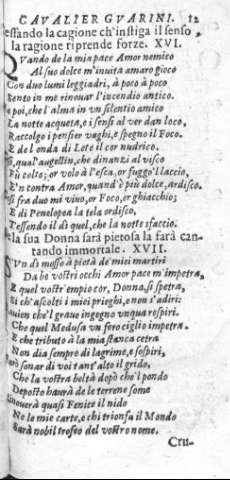 CAVALIER GVARINI. 12
cessando la cagione ch'instiga il senso,
la ragione riprende forze. XVI.
QVando de la mia pace Amor nemico
Al suo dolce m'inuita amaro gioco
Con duo lumi leggiadri, à poco à poco
Sento in me rinouar l'incendio antico.
E poi, che l'alma in vn silentio amico
La notte acqueta, e i sensi al ver dan loco,
Raccolgo i pensier vaghi, e spegno il Foco.
E de l'onda di Lete il cor nudrico.
qual'augellin, che dinanzi al visco
Fù colto; or volo à l'esca, or fuggo'l laccio,
E'n contra Amor, quand'è più dolce, ardisco.
sì fra duo mi viuo, or Foco, or ghiaccio;
E di Penelopea la tela ordisco,
Tessendo il dì quel, che la notte sfaccio.
Se la sua Donna sarà pietosa la farà can-
tando immortale. XVII.
SVn dì mosso à pietà de' miei martiri
Da be vostri occhi Amor pace m'impetra,
E quel vostr'empio cor, Donna, si spetra,
Sì ch'ascolti i miei prieghi, e non s'adiri:
Auien che'l graue ingegno vnqua respiri.
Che quel Medusa vn fero ciglio impetra.
E che tributo à la mia stanca cetra
Non dia sempre di lagrime, e sospiri,
sonar di voi tant'alto il grido,
Che la vostra beltà dopò che'l pondo
Deposto hauerà de le terrene some
quasi Fenice il nido
Ne le mie carte, e chi trionfa il Mondo
Sarà nobil trofeo del vostro nome.
Cru-